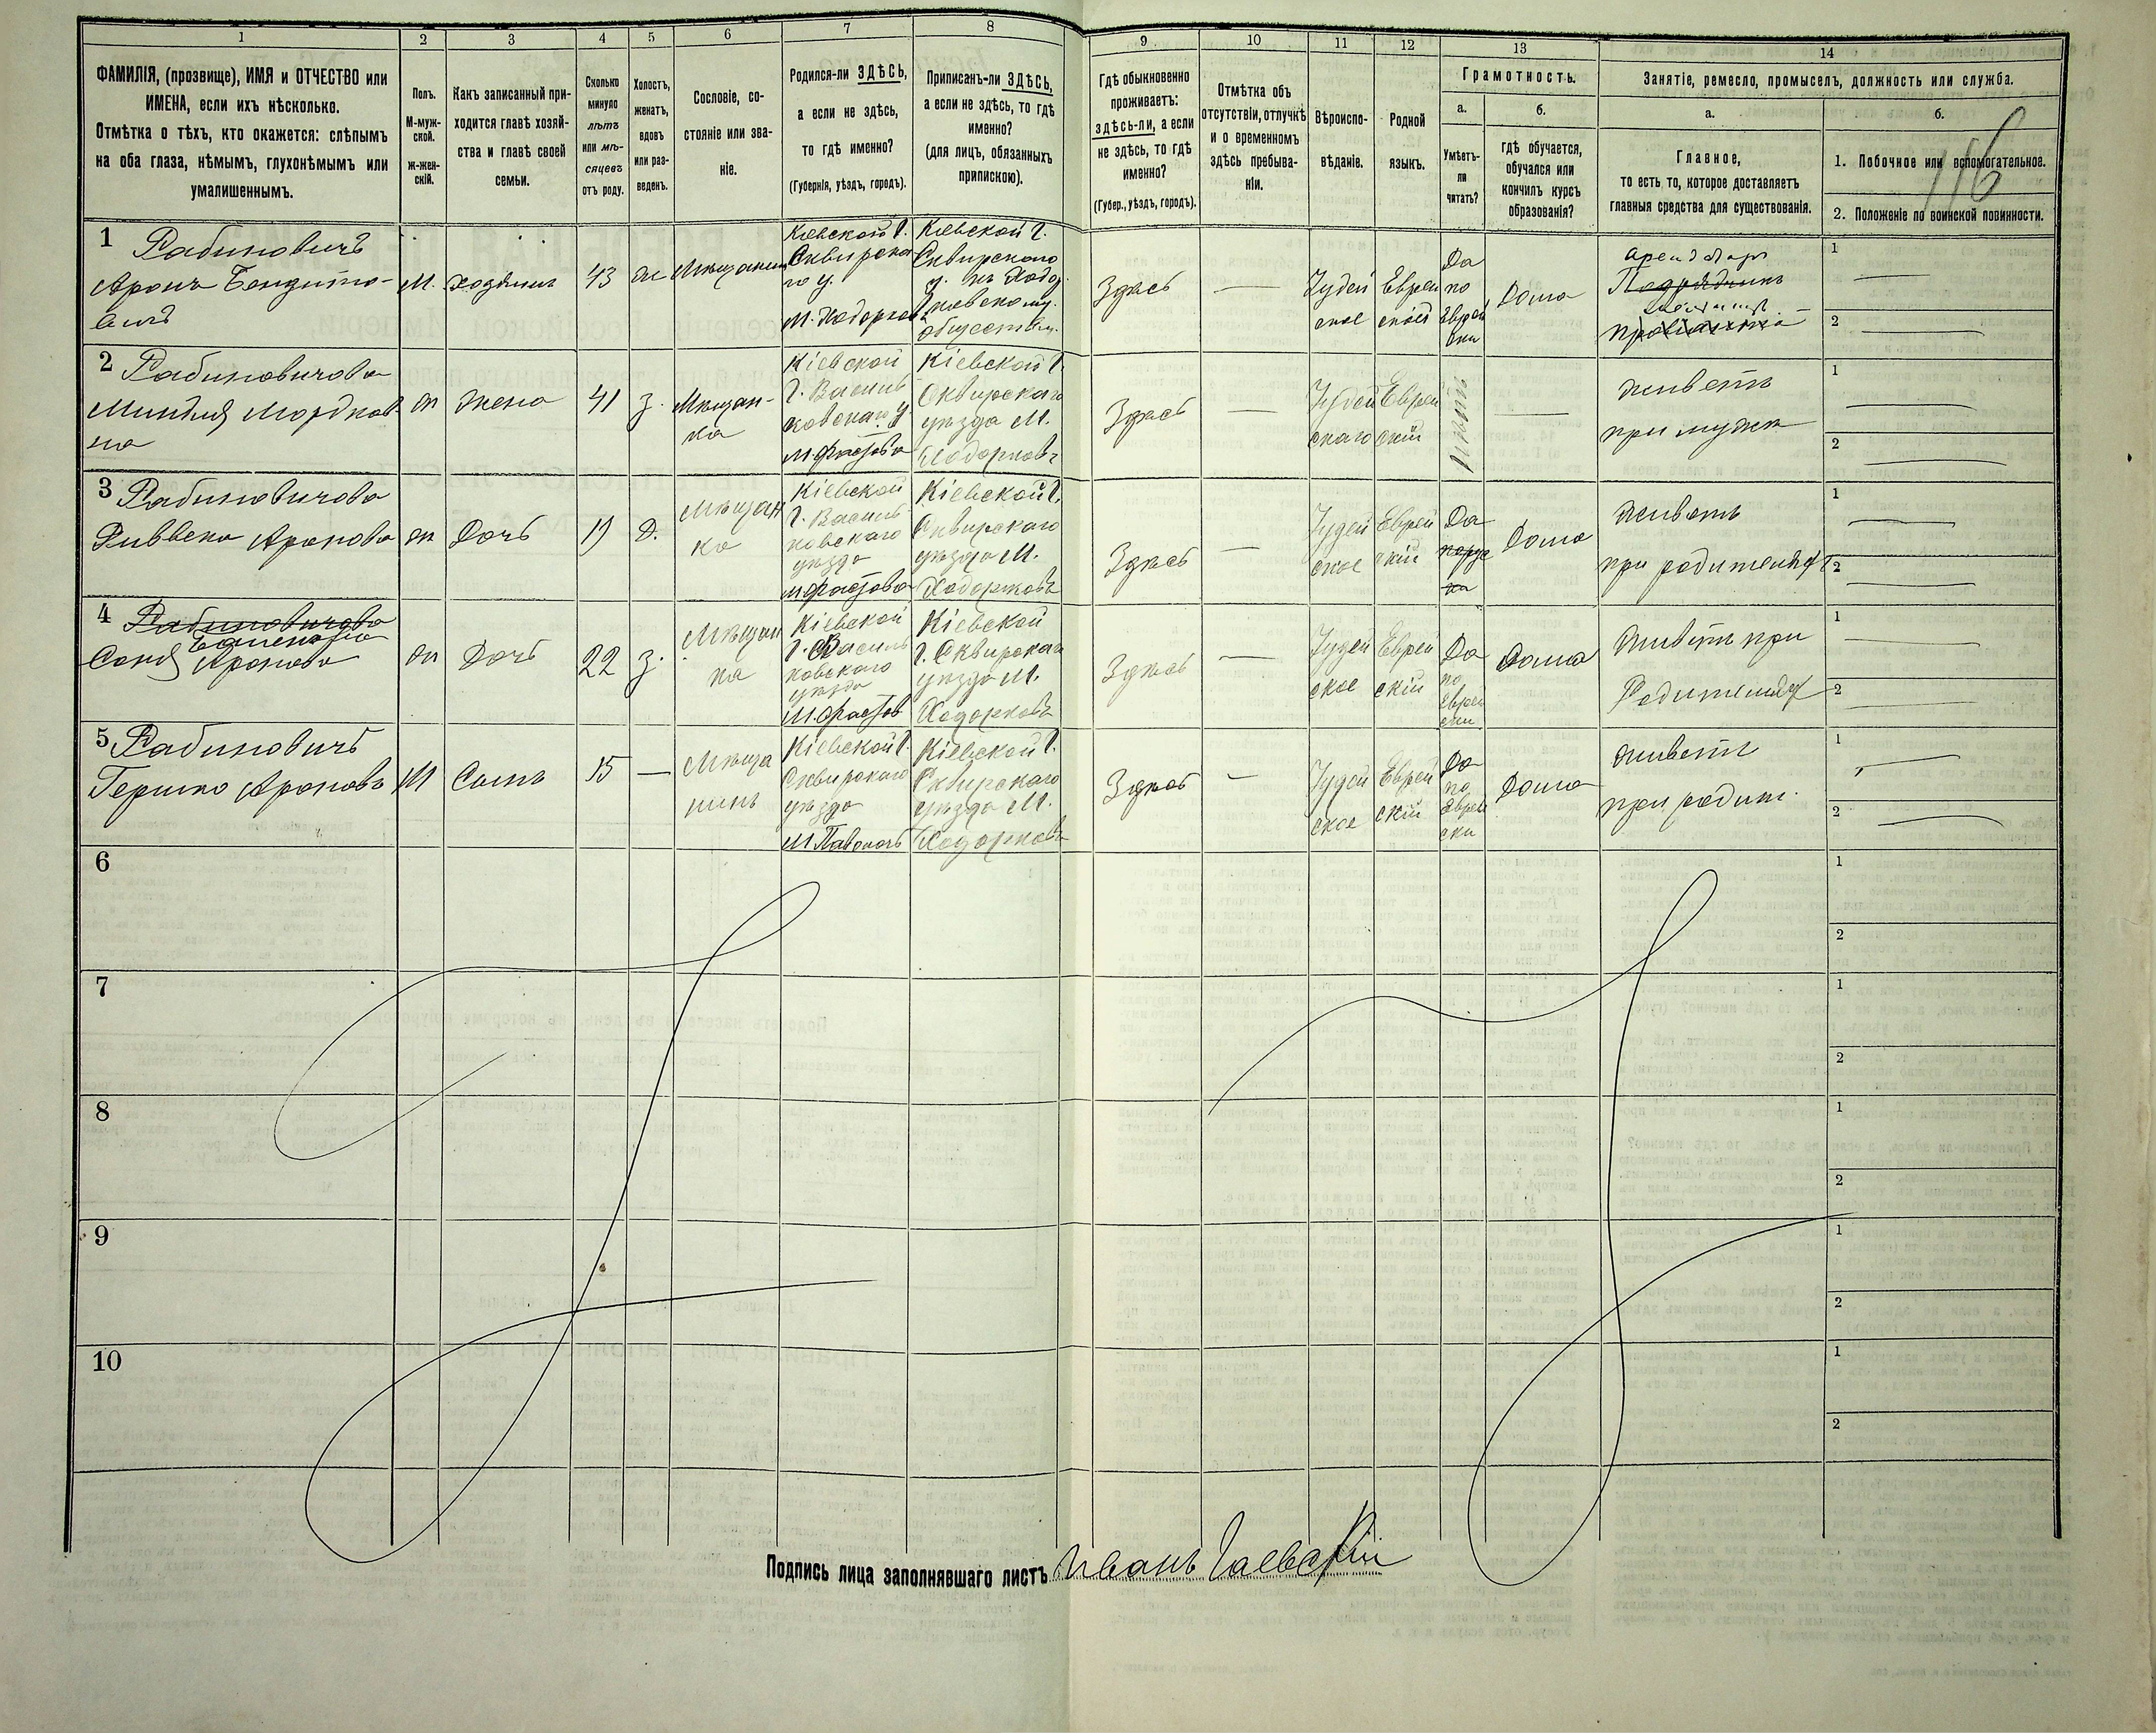 1 2 3 4 5 6 7 8 9 10 11 12 13 14
ФАМИЛІЯ, (прозвище), ИМЯ и ОТЧЕСТВО или
ИМЕНА, если ихъ нѣсколько.
Отмѣтка о тѣхъ, кто окажется: слѣпымъ
на оба глаза, нѣмымъ, глухонѣмымъ или
умалишеннымъ.
Полъ.
М-муж-
ской.
ж-жен-
скій.
Какъ записанный при-
ходится главѣ хозяй-
ства и главѣ своей
семьи.
Сколько
минуло
лѣтъ
или мѣ-
сяцевъ
отъ роду.
Холостъ,
женатъ,
вдовъ
или раз-
веденъ.
Сословіе, со-
стояніе или зва-
ніе.
Родился-ли ЗДѢСЬ,
а если не здѣсь,
то гдѣ именно?
(Губернія, уѣздъ, городъ).
Приписанъ-ли ЗДѢСЬ,
а если не здѣсь, то гдѣ
именно?
(для лицъ, обязанныхъ
припискою).
Гдѣ обыкновенно
проживаетъ:
здѣсь-ли, а если
не здѣсь, то гдѣ
именно?
(Губер., уѣздъ, городъ).
Отмѣтка объ
отсутствіи, отлучкѣ
и о временномъ
здѣсь пребыва-
ніи.
Вѣроиспо-
вѣданіе.
Родной
языкъ.
Грамотность.
а.
Умѣетъ-
ли
читать?
б.
гдѣ обучается,
обучался или
кончилъ курсъ
образованія?
Занятіе, ремесло, промыселъ, должность или служба.
а.
Главное,
то есть то, которое доставляетъ
главныя средства для существованія.
б.
1. Побочное или вспомогательное.
2. Положеніе по воинской повинности.
116
1 Рабиновичъ
Аронъ
М.
хозяинъ
43
ж
Мѣщанинъ
Кіевской г.
Сквирска
го у.
Кіевской г.
Сквирскаго
Здѣсь
Іудей
ское
Еврей
ской
Да
по
Еврей
ски
Дома
Арендаторъ
Подрядчикъ
1
2
2 Рабиновичова
Миндля Мордков
на
ж
жена
41
з.
Мѣщан-
ка
Кіевской
г. Василь
ковскаго у
м. Фастова
Кіевской г.
Сквирскаго
уѣзда м.
Ходорковъ
Здѣсь
Іудей
скаго
Еврей
скій
Нѣтъ
живетъ
при мужѣ
1
2
3 Рабиновичова
Аронова
ж
Дочь
19
Д.
Мѣщан
ка
Кіевской
г. Василь
ковскаго
уѣзда
м. Фастова
Кіевской г.
Сквирскаго
уѣзда м.
Ходорковъ
Здѣсь
Іудей
ское
Еврей
скій
Да
Дома
живетъ
при родителяхъ
1
2
4 Рабиновичова
Соня Аронова
ж
Дочь
22
з.
Мѣщан
ка
Кіевской
г. Василь
ковскаго
уѣзда
м. Фастов
Кіевской
г. Сквирскаго
уѣзда м.
Ходорковъ
Здѣсь
Іудей
ское
Еврей
скій
Да
по
Еврей
ски
Дома
живетъ при
Родителяхъ
1
2
5 Рабиновичъ
Гершко Ароновъ
М
Сынъ
15
Мѣща
нинъ
Кіевской г.
Сквирскаго
уѣзда
Кіевской г.
Сквирскаго
уѣзда м.
Ходорковъ
Здѣсь
Іудей
ское
Еврей
скій
Да
по
Еврей
ски
Дома
живетъ
при родит.
1
2
6
1
2
7
1
2
8
1
2
9
1
2
10
1
2
Подпись лица заполнявшаго листъ Иванъ Гаевскій